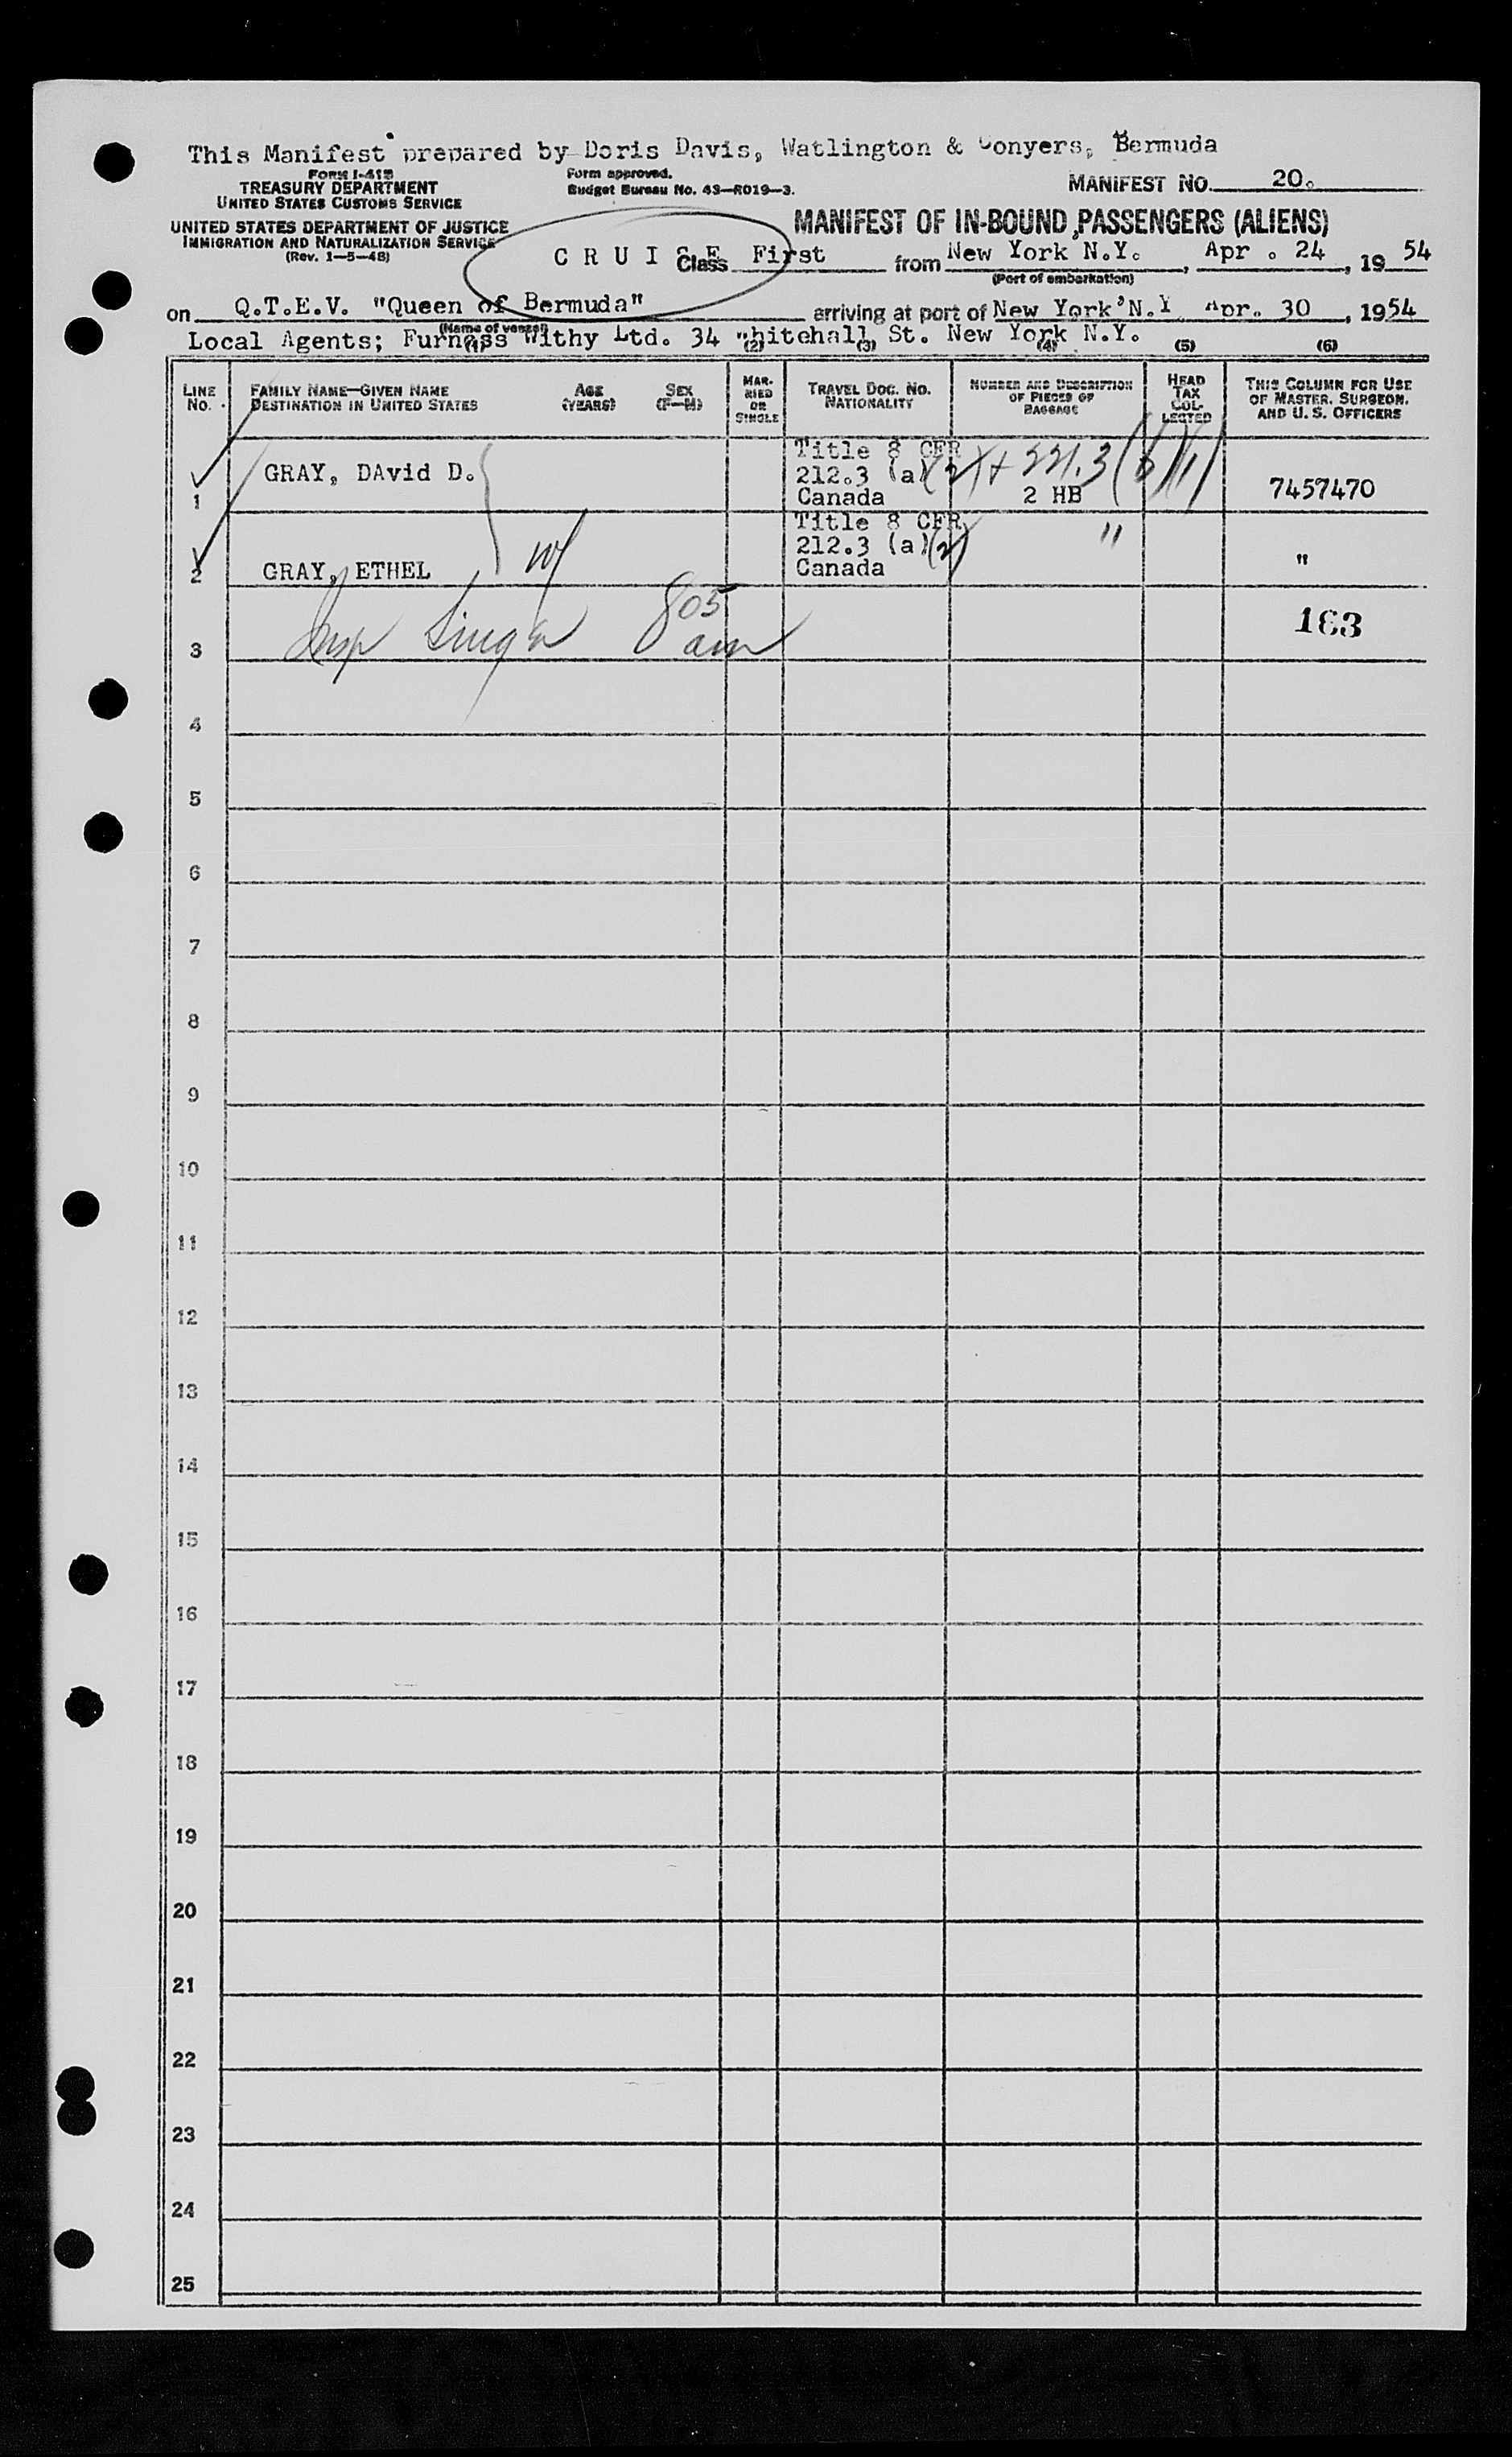 This Manifest prepared by Doris Davis, Watlington & Conyers, Bermuda
FORM I-415
TREASURY DEPARTMENT
UNITED STATES CUSTOMS SERVICE
Form approved.
Budget Bureau No. 43—R019—3.
MANIFEST NO. 20.
UNITED STATES DEPARTMENT OF JUSTICE
IMMIGRATION AND NATURALIZATION SERVICE
(Rev. 1—5—48)
MANIFEST OF IN-BOUND PASSENGERS (ALIENS)
CRUISE Class First from New York N.Y., Apr . 24, 1954
(Port of embarkation)
on Q.T.E.V. "Queen of Bermuda" arriving at port of New York N.Y Apr. 30, 1954
(Name of vessel)
Local Agents; Furness Withy Ltd. 34 Whitehall St. New York N.Y.
(1) (2) (3) (4) (5) (6)
LINE NO. FAMILY NAME—GIVEN NAME DESTINATION IN UNITED STATES AGE (YEARS) SEX (F—M) MARRIED OR SINGLE TRAVEL DOC. NO. NATIONALITY NUMBER AND DESCRIPTION OF PIECES OF BAGGAGE HEAD TAX COLLECTED THIS COLUMN FOR USE OF MASTER, SURGEON, AND U. S. OFFICERS
Title 8 CFR
1 GRAY, DAvid D. 212.3 (a)(2) + 221.3
Canada 2 HB 7457470
Title 8 CFR
212.3 (a)(2) "
2 GRAY, ETHEL W Canada "
3 Insp 805 am 163
4
5
6
7
8
9
10
11
12
13
14
15
16
17
18
19
20
21
22
23
24
25